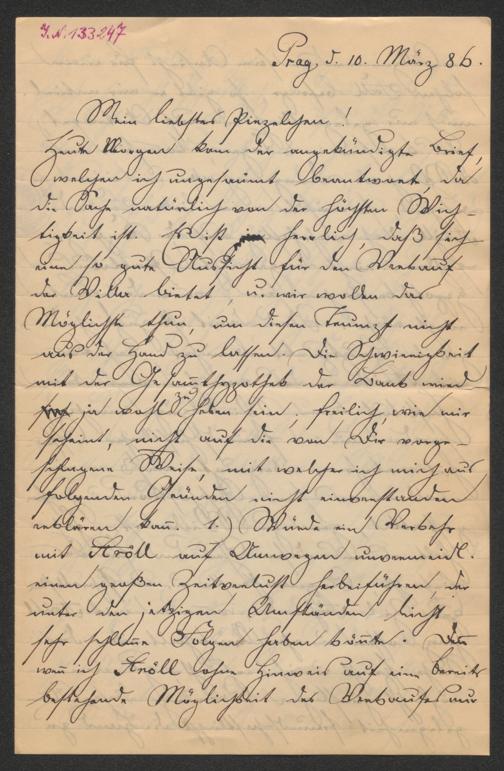 J.N. 133247
Prag, d. 10. März 86.
Mein liebstes Pinzelchen!
Heute Morgen kam der angekündigte Brief,
welchen ich ungesäumt beantworte, da
die Sache natürlich von der höchsten Wich-
tigkeit ist. Es ist herrlich, daß sich
eine so gute Aussicht für den Verkauf
der Villa bietet, u. wir wollen das
Möglichste thun, um diesen Trumpf nicht
aus der Hand zu lassen. Die Schwierigkeit
mit der Gesammthypothek der Bank wird
ja wohl zu heben sein; freilich, wie mir
scheint, nicht auf die von Dir vorge-
schlagene Weise, mit welcher ich mich aus
folgenden Gründen nicht einverstanden
erklären kann. 1.) Würde ein Verkehr
mit Kröll auf Umwegen unvermeidl.
einen großen Zeitverlust herbeiführen, der
unter den jetzigen Umständen leicht
sehr schlimme Folgen haben könnte. Denn
wenn ich Kröll ohne Hinweis auf eine bereits
bestehende Möglichkeit des Verkaufes nur